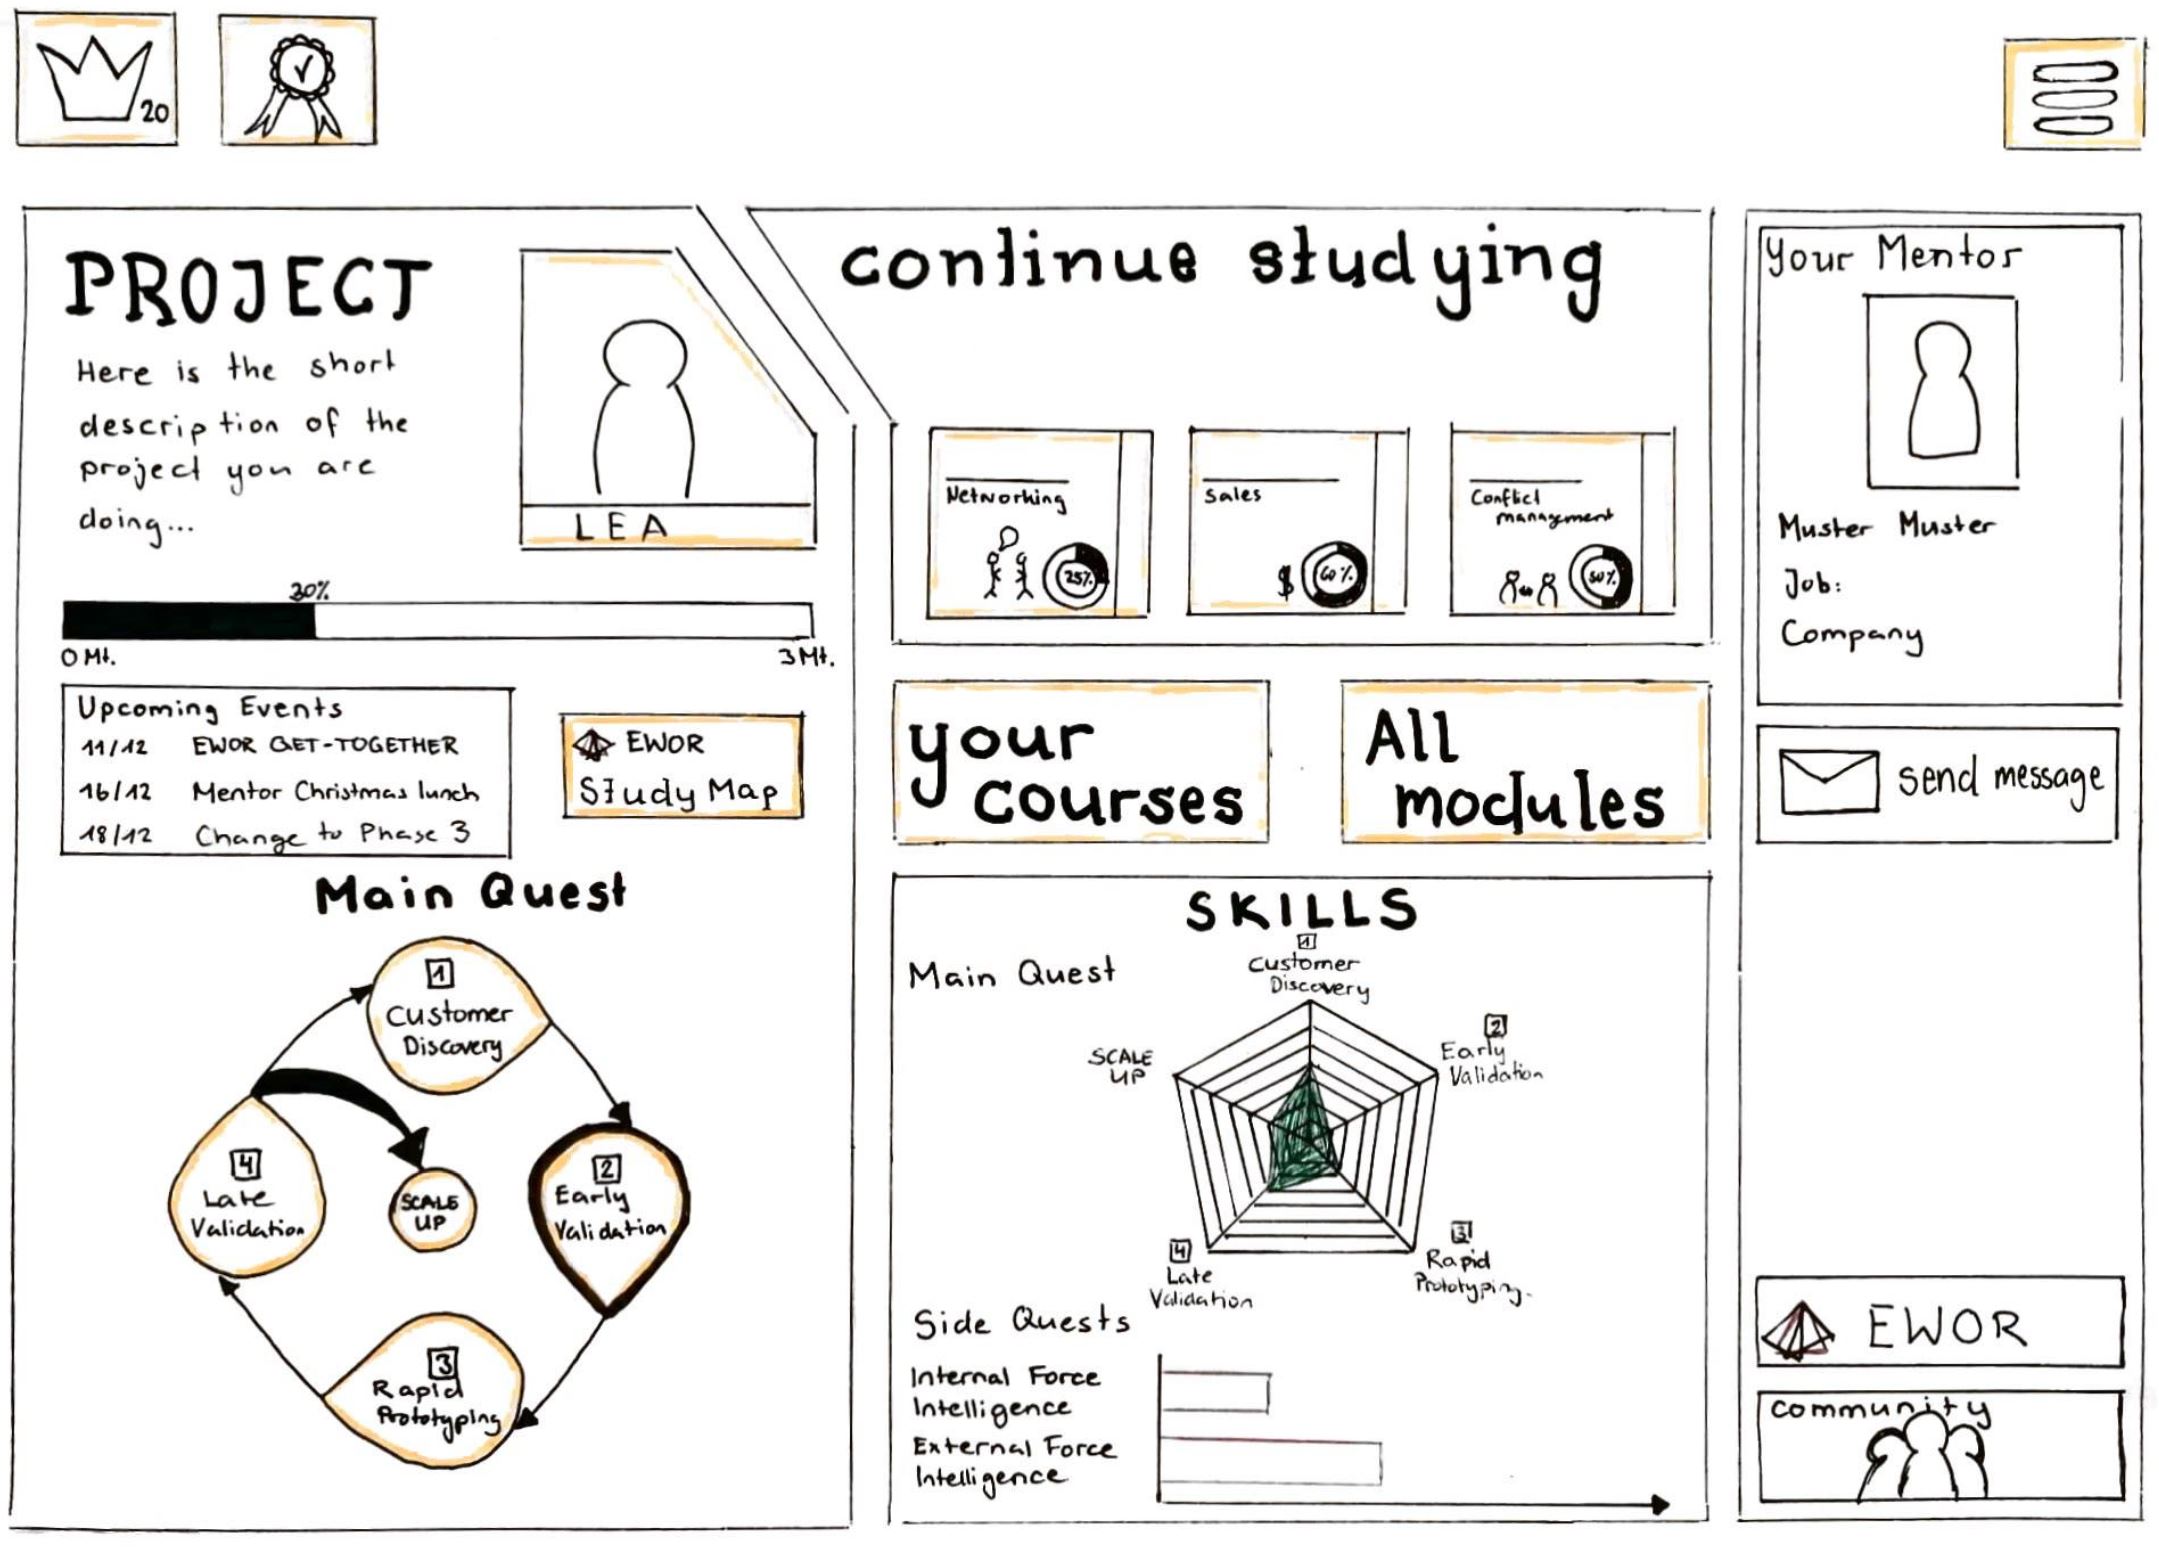 20
PROJECT
Here is the short
description of the
project you are
doing...
LEA
30%
0 Mt.
3 Mt.
Upcoming Events
11/12 EWOR GET-TOGETHER
16/12 Mentor Christmas lunch
18/12 Change to Phase 3
EWOR
Study Map
Main Quest
1
Customer
Discovery
2
Early
Validation
3
Rapid
Prototyping
4
Late
Validation
SCALE
UP
continue studying
Networking
25%
Sales
60%
Conflict
management
50%
your
courses
All
modules
SKILLS
Main Quest
1
Customer
Discovery
2
Early
Validation
3
Rapid
Prototyping.
4
Late
Validation
SCALE
UP
Side Quests
Internal Force
Intelligence
External Force
Intelligence
your Mentor
Muster Muster
Job:
Company
send message
EWOR
community